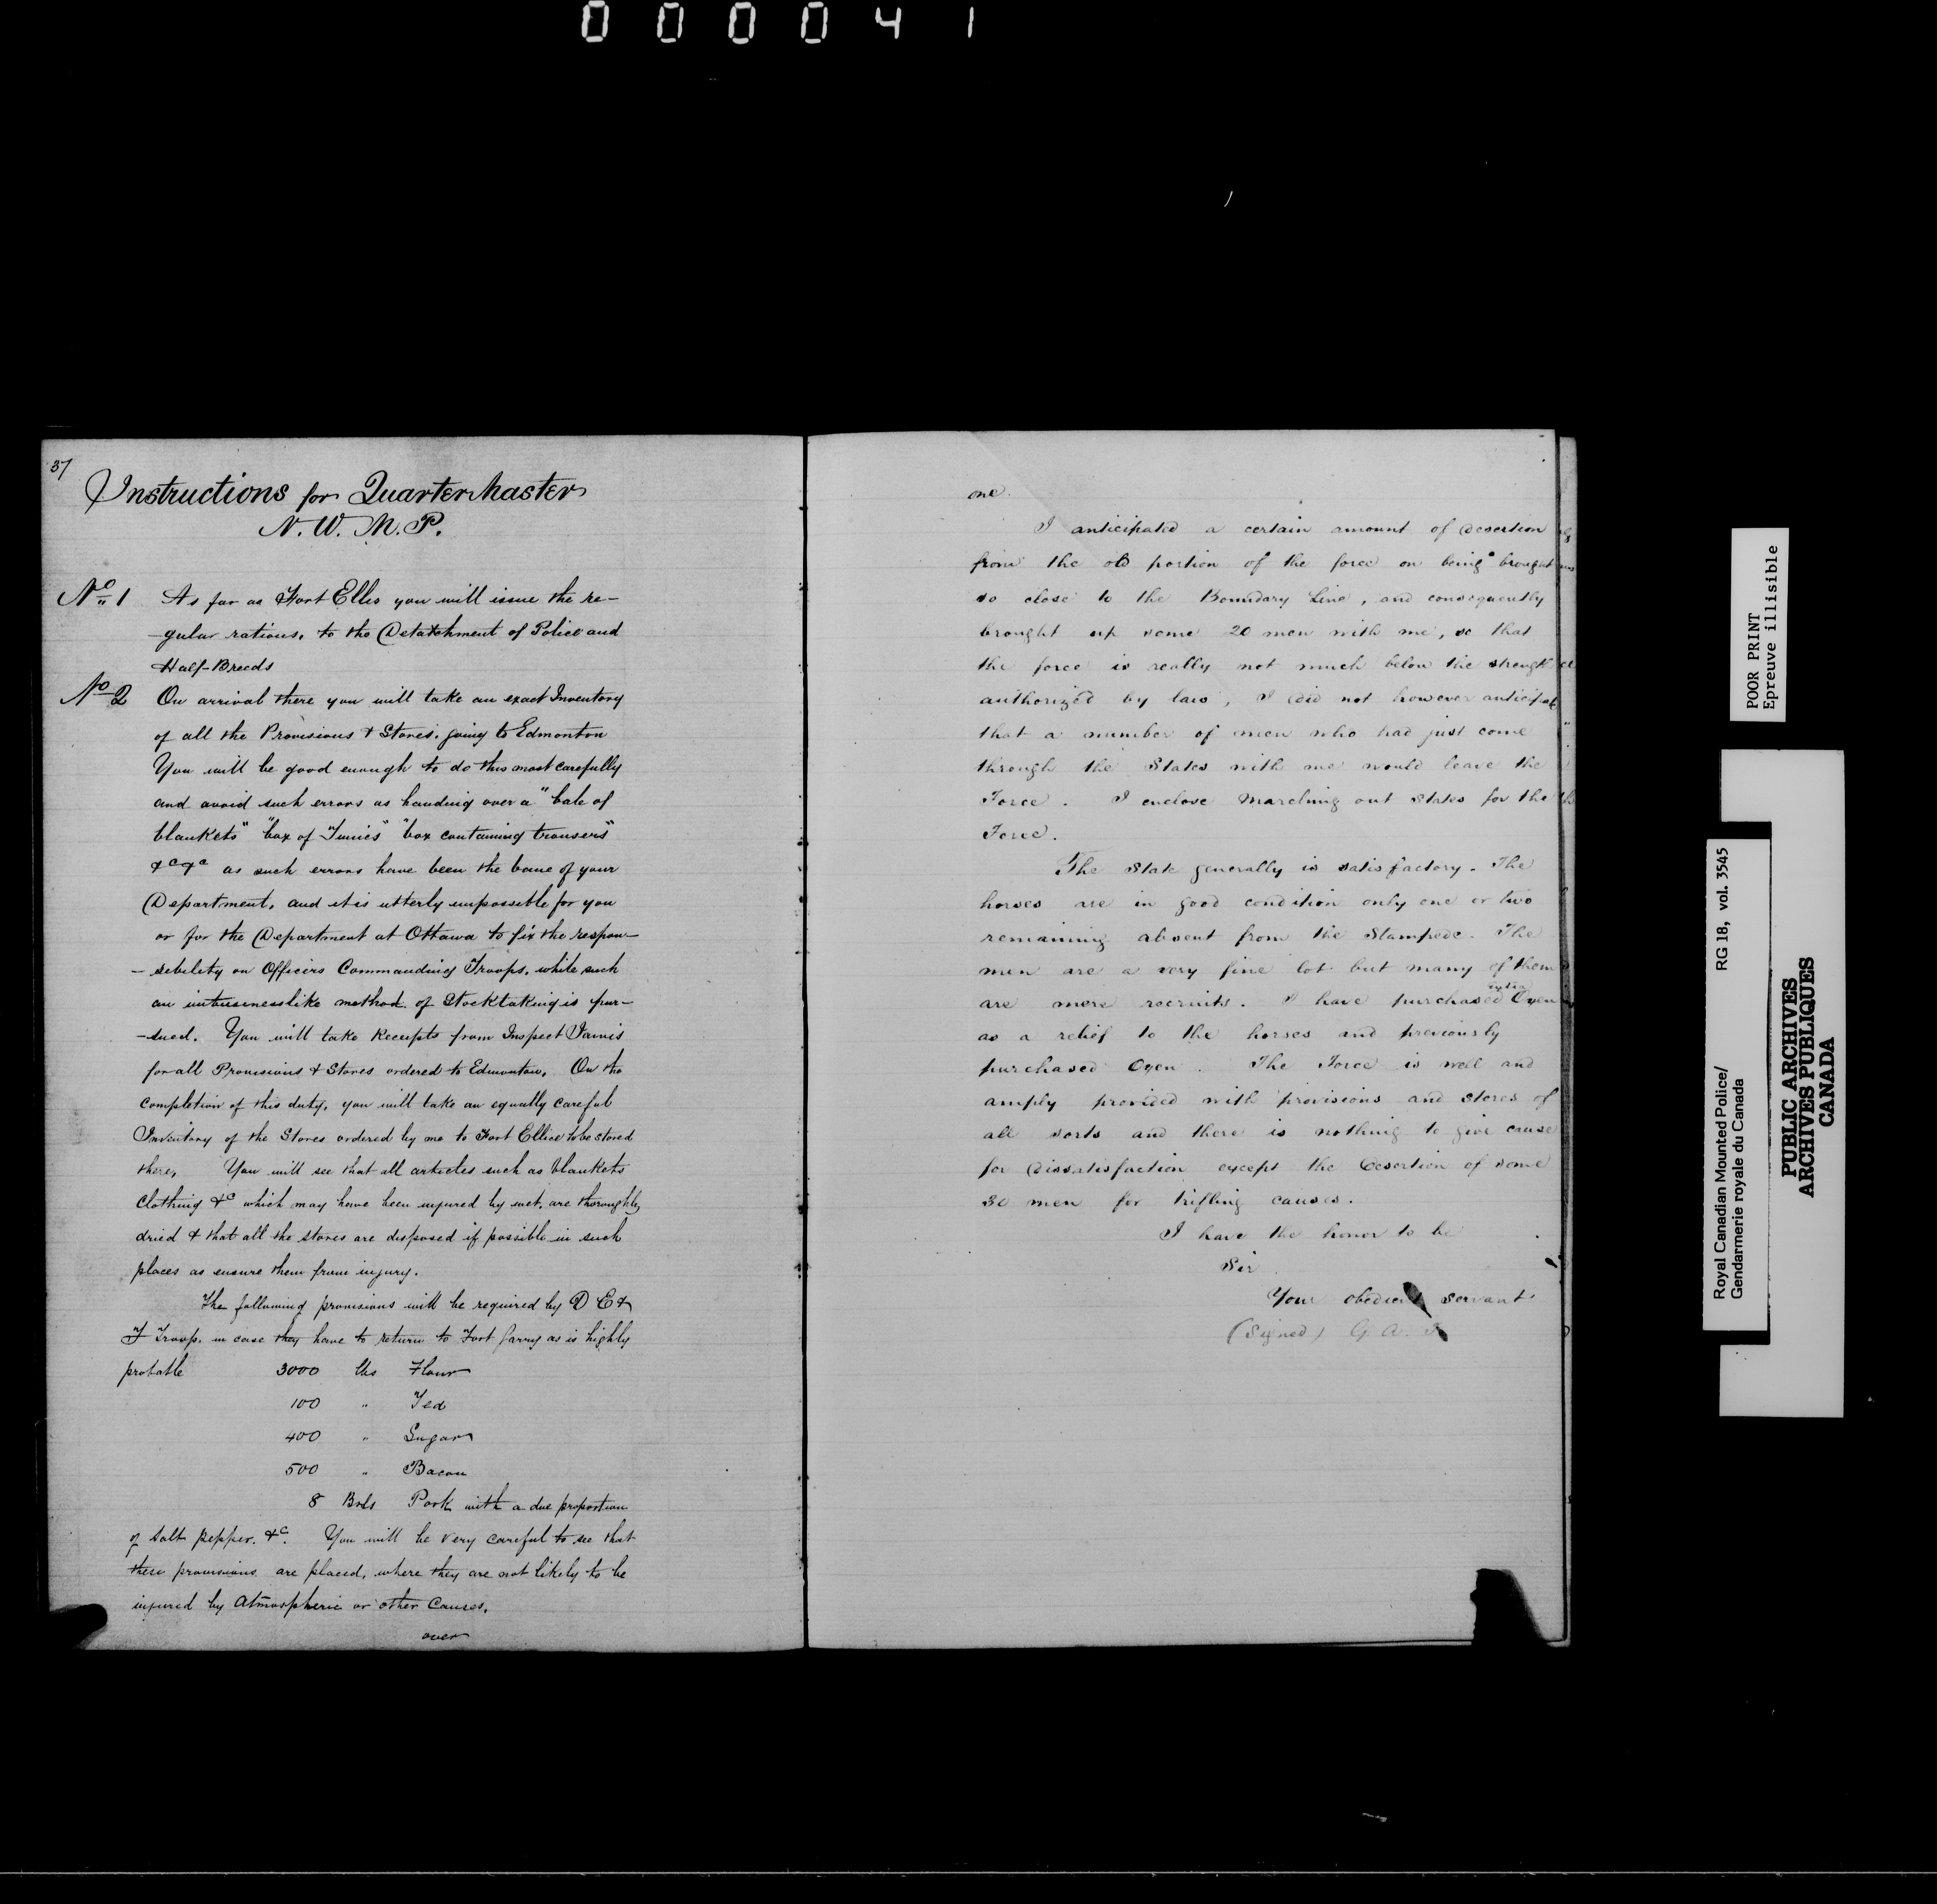 000041
37
Instructions for Quarter Master
N. W. M. P.
No 1 As far as Fort Ellis you will issue the re-
-gular rations, to the Detatchment of Police and
Half-Breeds
No 2 On arrival there you will take an exact Inventory
of all the Provisions & Stores, going to Edmonton
You will be good enough to do this most carefully
and avoid such errors as handing over a "bale of
blankets" "box of Tunics" "box containing trousers"
&c &c as such errors have been the bane of your
Department, and it is utterly impossible for you
or for the Department at Ottawa to fix the respon-
-sibility on Officers Commanding Troops, while such
an unbusinesslike method of Stocktaking is pur-
-sued. You will take Receipts from Inspect Jarvis
for all Provisions & Stores ordered to Edmonton. On the
completion of this duty, you will take an equally careful
Inventory of the Stores ordered by me to Fort Ellice to be stored
there, You will see that all articles such as blankets
clothing &c which may have been injured by wet, are thoroughly
dried & that all the stores are disposed if possible in such
places as ensure them from injury.
The following provisions will be required by D E &
F Troop, in case they have to return to Fort Garry as is highly
probable 3000 lbs Flour
100 " Tea
400 " Sugar
500 " Bacon
8 Brls Pork with a due proportion
of salt pepper, &c. You will be very careful to see that
these provisions are placed, where they are not likely to be
injured by Atmospheric or other Causes.
over
one.
I anticipated a certain amount of desertion
from the old portion of the force on being brought
so close to the Boundary Line, and consequently
brought up some 20 men with me, so that
the force is really not much below the strength
authorized by law, I did not however anticipate
that a number of men who had just come
through the States with me would leave the
Force. I enclose Marching out States for the
Force.
The State generally is satisfactory. The
horses are in good condition only one or two
remaining absent from the Stampede. The
men are a very fine lot but many of them
are mere recruits. I have purchased extra Oxen
as a relief to the horses and previously
purchased Oxen. The Force is well and
amply provided with provisions and stores of
all sorts and there is nothing to give cause
for dissatisfaction except the desertion of some
30 men for trifling causes.
I have the honor to be
Sir
Your obedient servant
(Signed) G. A.
POOR PRINT
Epreuve illisible
Royal Canadian Mounted Police/ RG 18, vol. 3545
Gendarmerie royale du Canada
PUBLIC ARCHIVES
ARCHIVES PUBLIQUES
CANADA